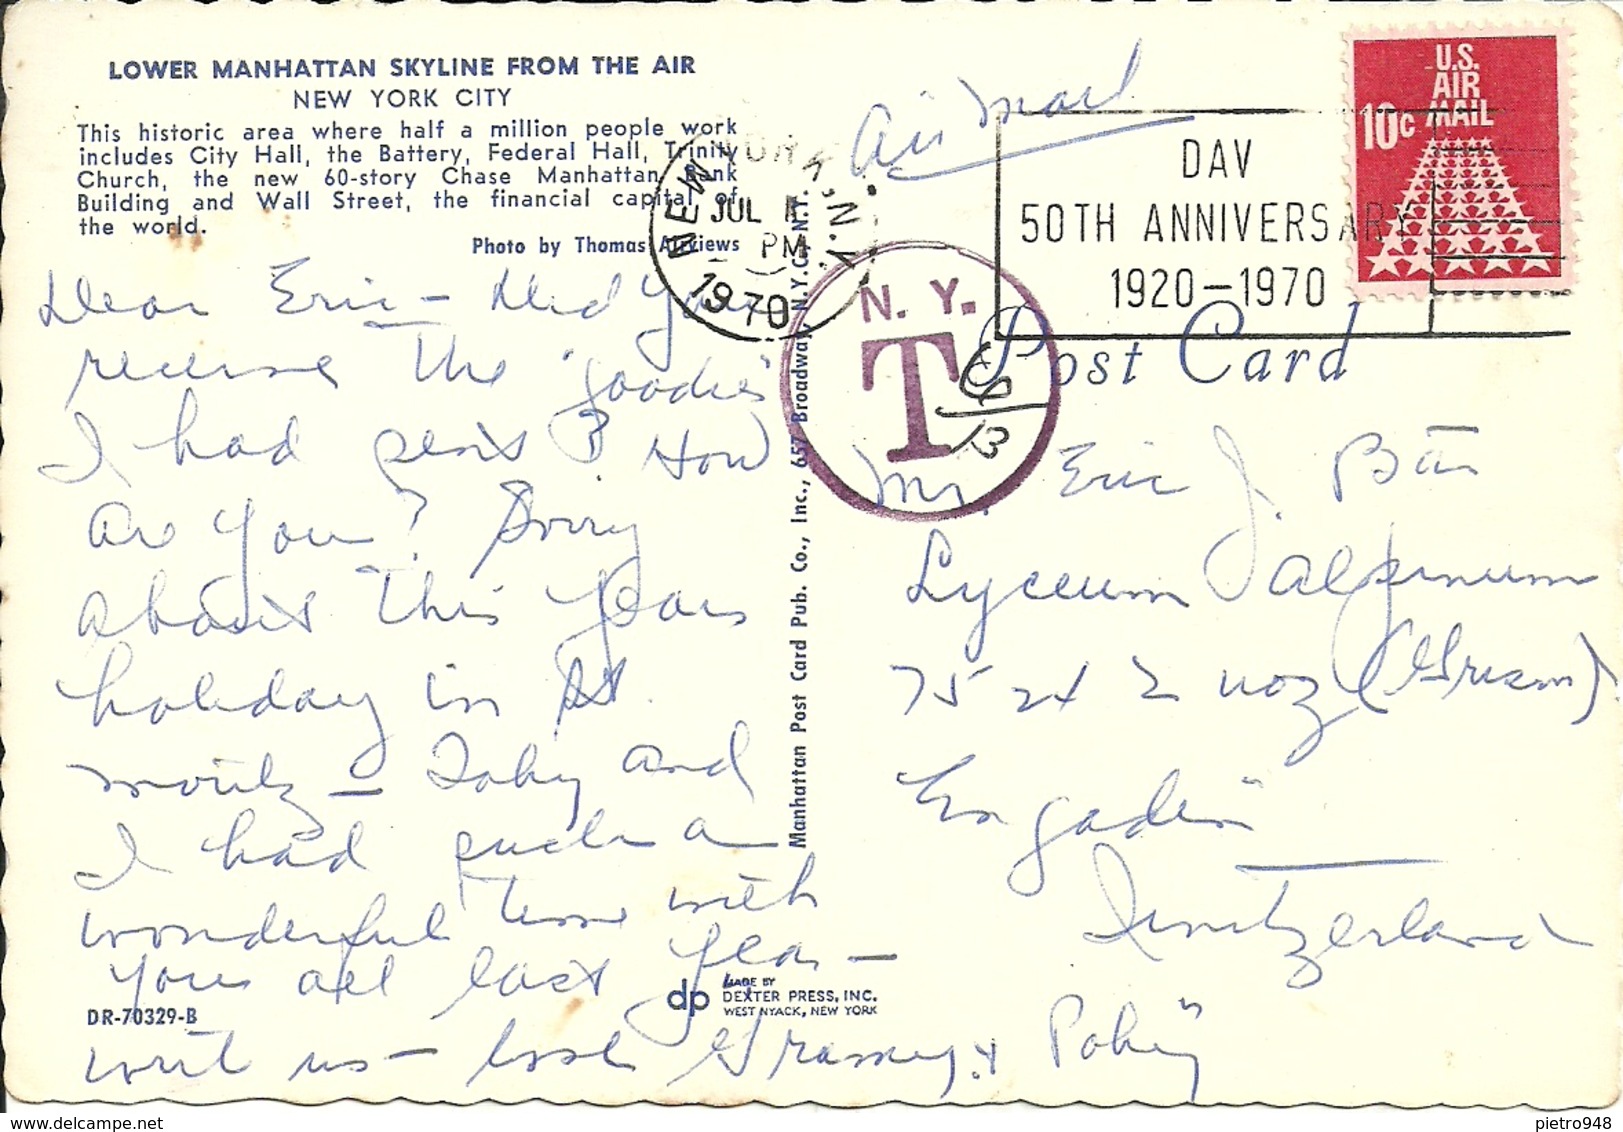 LOWER MANHATTAN SKYLINE FROM THE AIR
NEW YORK CITY
This historic area where half a million people work
includes City Hall, the Battery, Federal Hall, Trinity
Church, the new 60-story Chase Manhattan Bank
Building and Wall Street, the financial capital of
the world.
Photo by Thomas Airviews
Dear Eric - Did you
receive the "goodies"
I had sent? How
are you? Sorry
about this years
holiday in St.
Moritz - Toby and
I had such a
wonderful time with
you all last year -
write us - love Grammy &
DR-70329-B
dp MADE BY
DEXTER PRESS, INC.
WEST NYACK, NEW YORK
Manhattan Post Card Pub. Co., Inc., 657 Broadway, N.Y.C., N.Y.
Air Mail
NEW YORK, N.Y.
JUL
PM
1970
DAV
50TH ANNIVERSARY
1920-1970
U.S.
AIR
MAIL
10c
N. Y.
T
Post Card
Mr. Eric J.
Lyceum Alpinum
75 24 2 uoz
Engadin
Switzerland
www.delcampe.net
pietro948